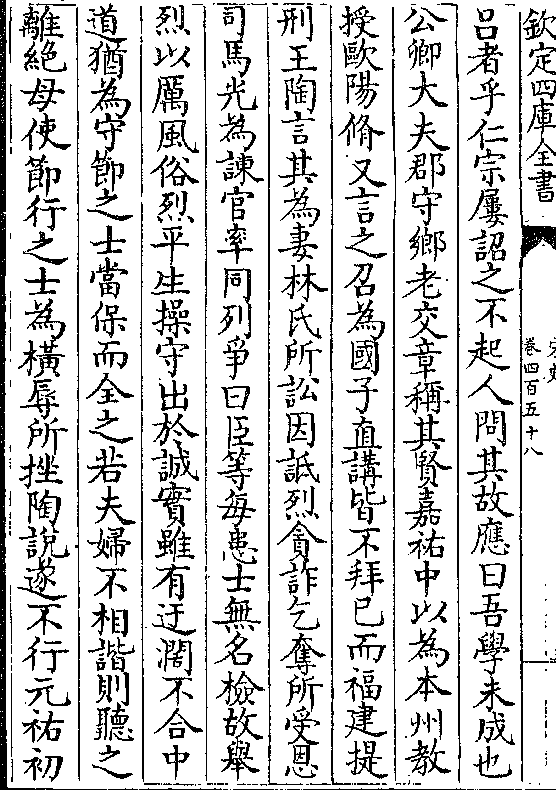 欽定四庫全書
卷四百五十八
吕者乎仁宗屢詔之不起人問其故應曰吾學未成也
公卿大夫郡守鄉老交章稱其賢嘉祐中以為本州教
授歐陽脩又言之召為國子直講皆不拜已而福建提
刑王陶言其為妻林氏所訟因詆烈貪詐乞奪所受恩
司馬光為諫官率同列爭曰臣等每患士無名檢故舉
烈以厲風俗烈平生操守出於誠實雖有迂濶不合中
道猶為守節之士當保而全之若夫婦不相諧則聽之
離絶毋使節行之士為橫辱所挫陶說遂不行元祐初